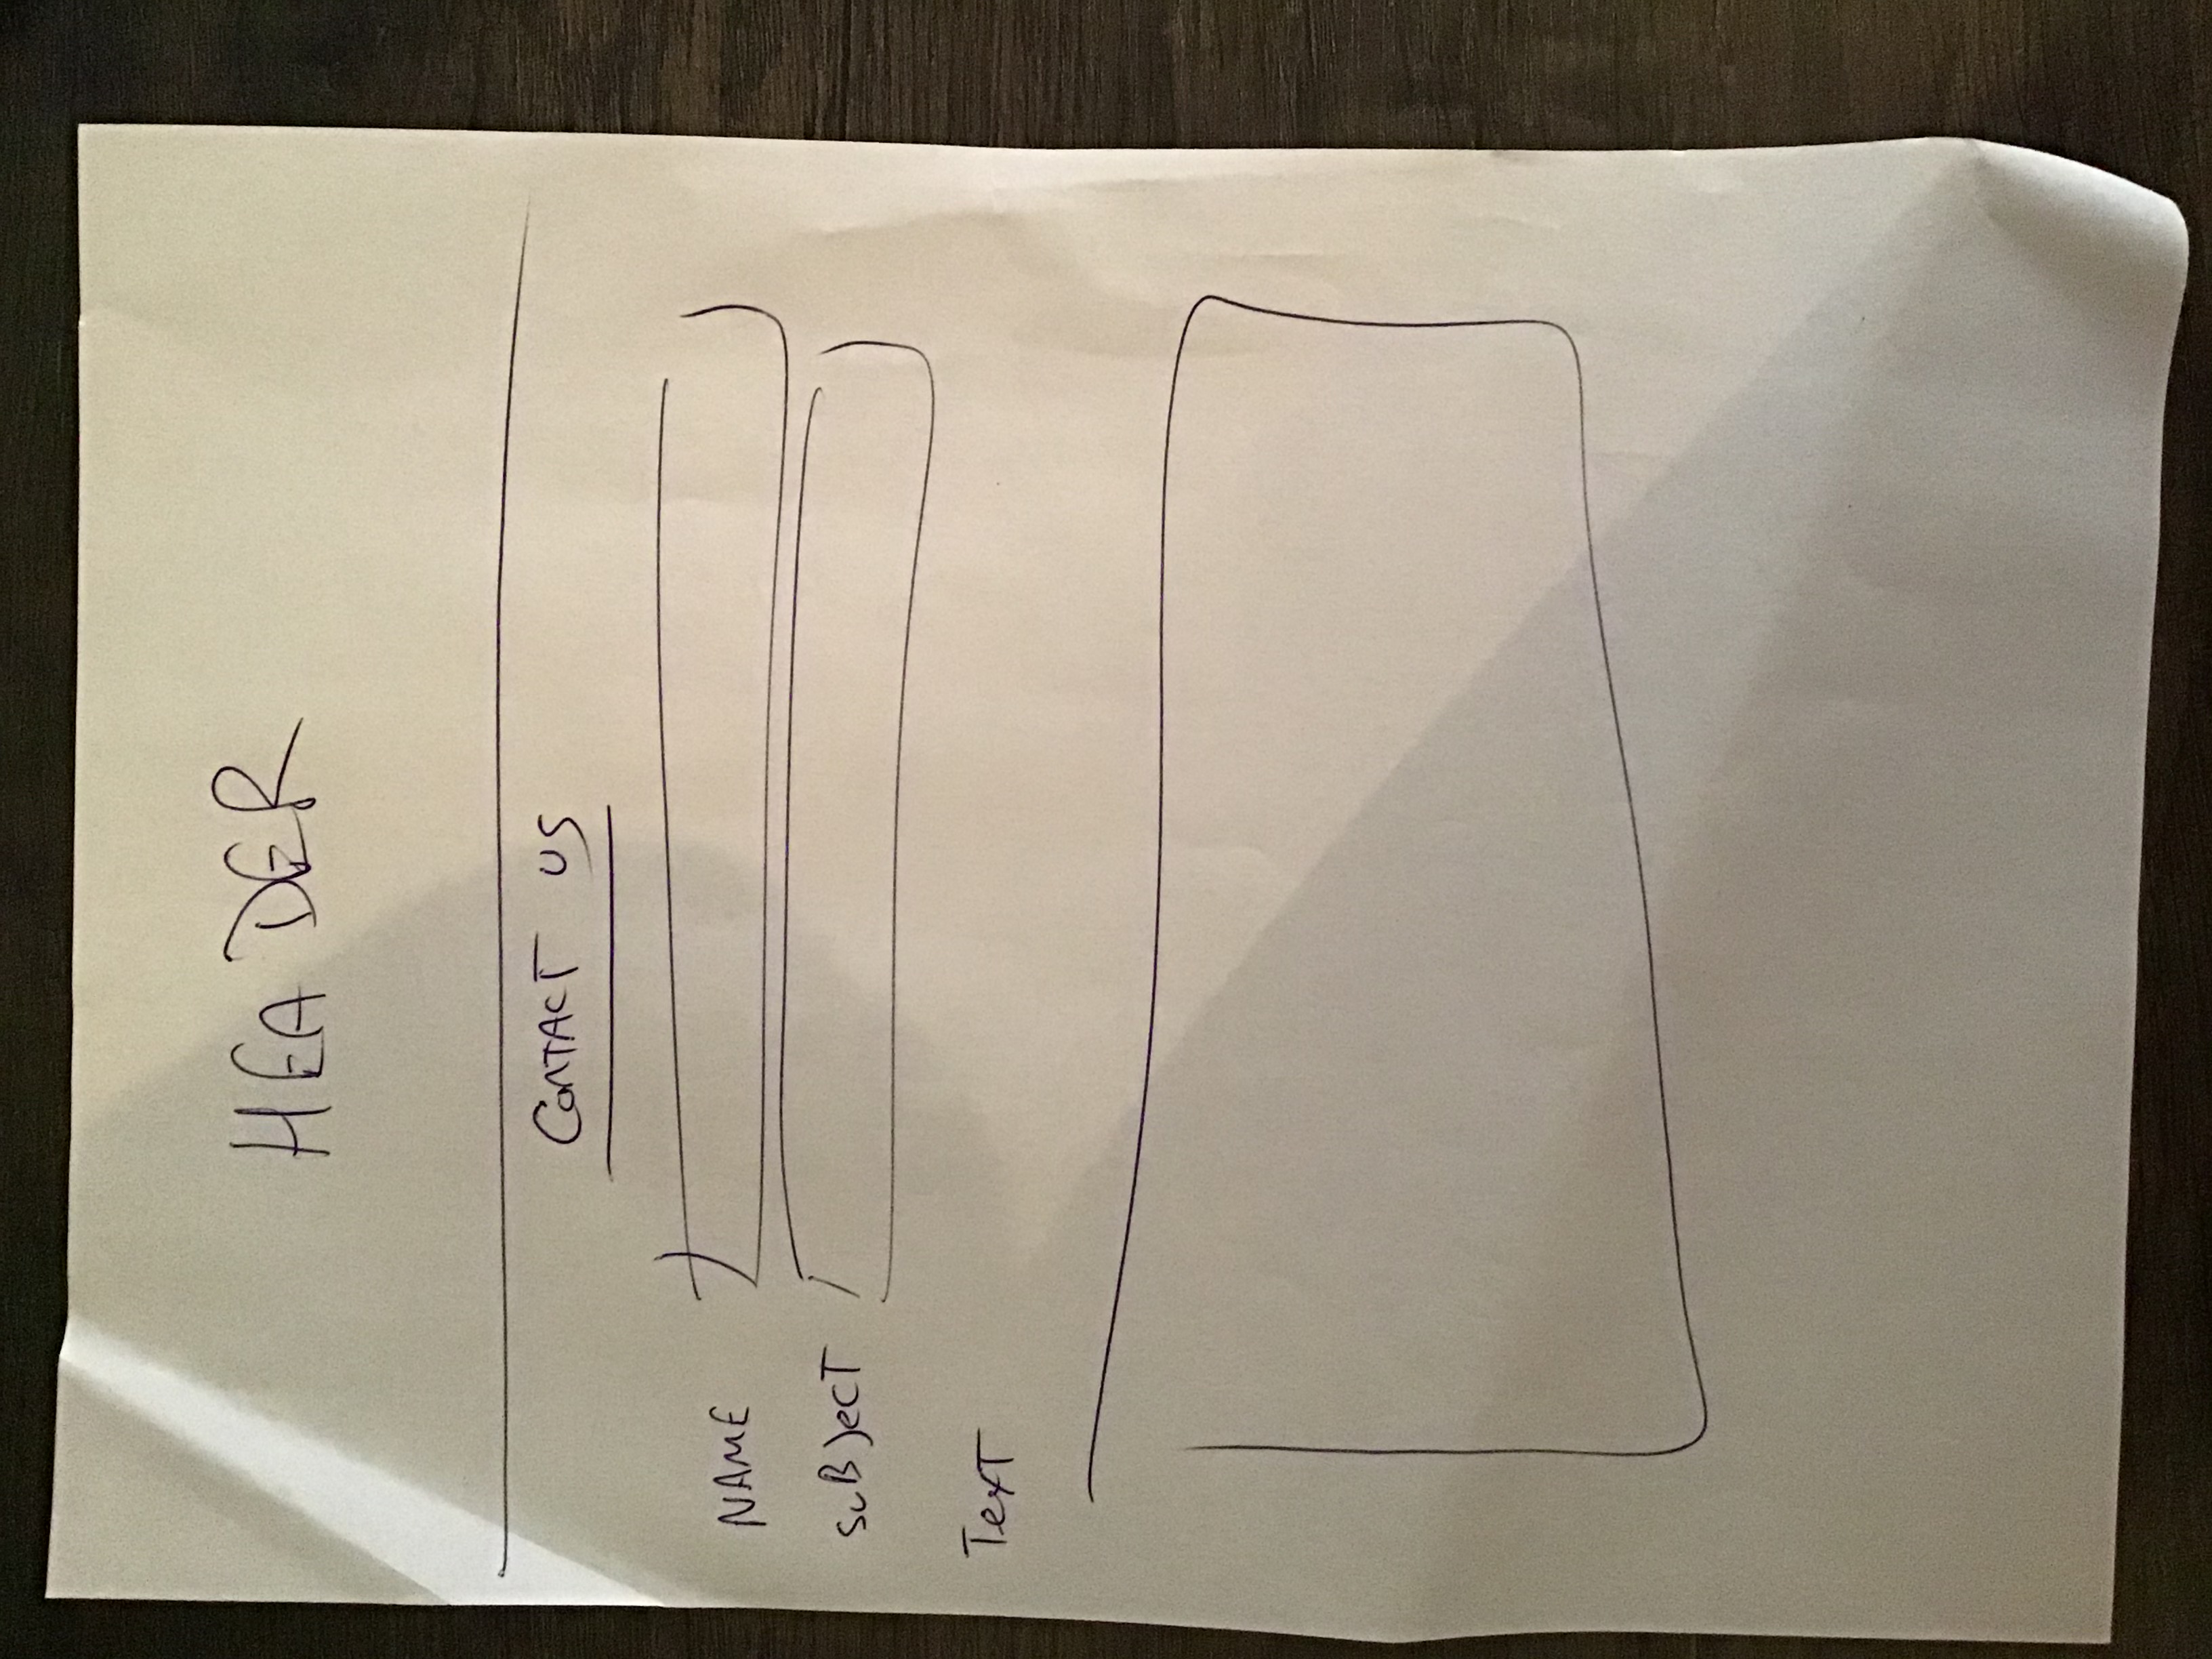 HEADER
CONTACT US
NAME
SUBJECT
TEXT